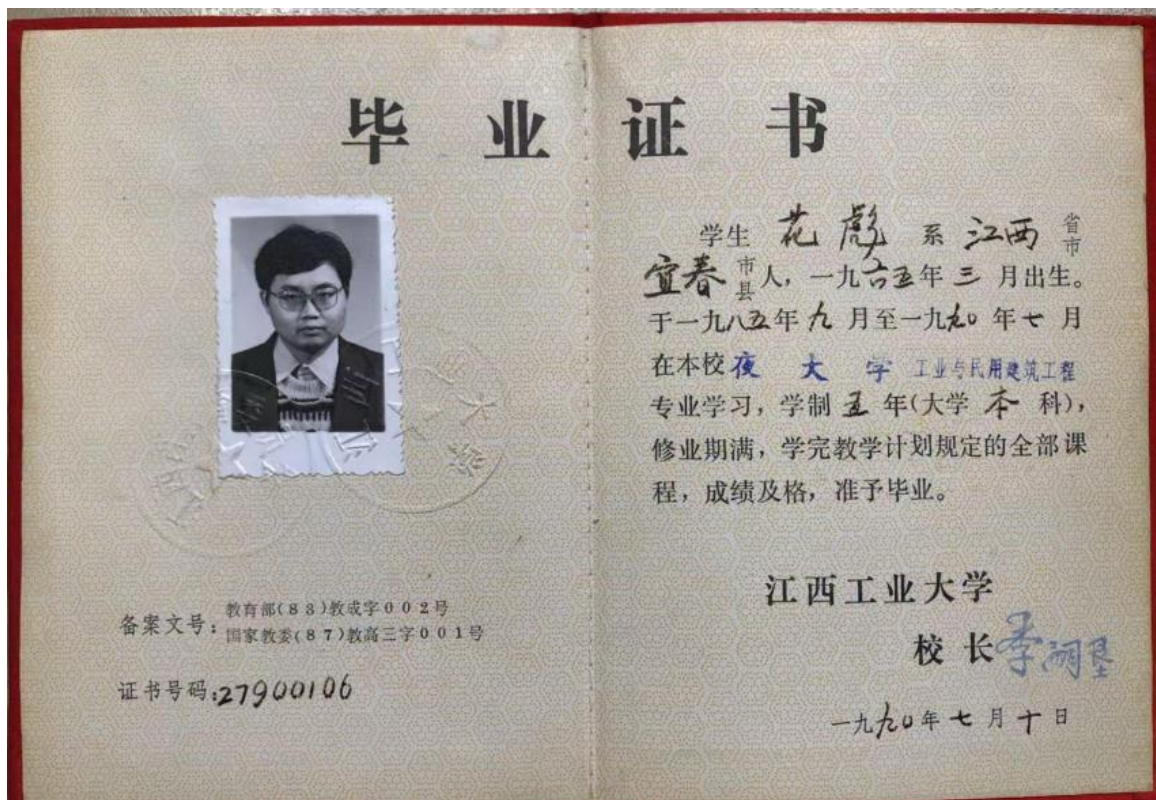 毕业证书
学生 花彪 系 江西 省市
宜春 市县 人，一九六五年 三 月出生。
于一九八五年 九 月至一九九0 年 七 月
在本校 夜 大 学 工业与民用建筑工程
专业学习，学制 五 年(大学 本 科)，
修业期满，学完教学计划规定的全部课
程，成绩及格，准予毕业。
江西工业大学
校长 李嗣垦
一九九0年 七 月 十 日
备案文号：教育部(83)教成字002号
国家教委(87)教高三字001号
证书号码：27900106